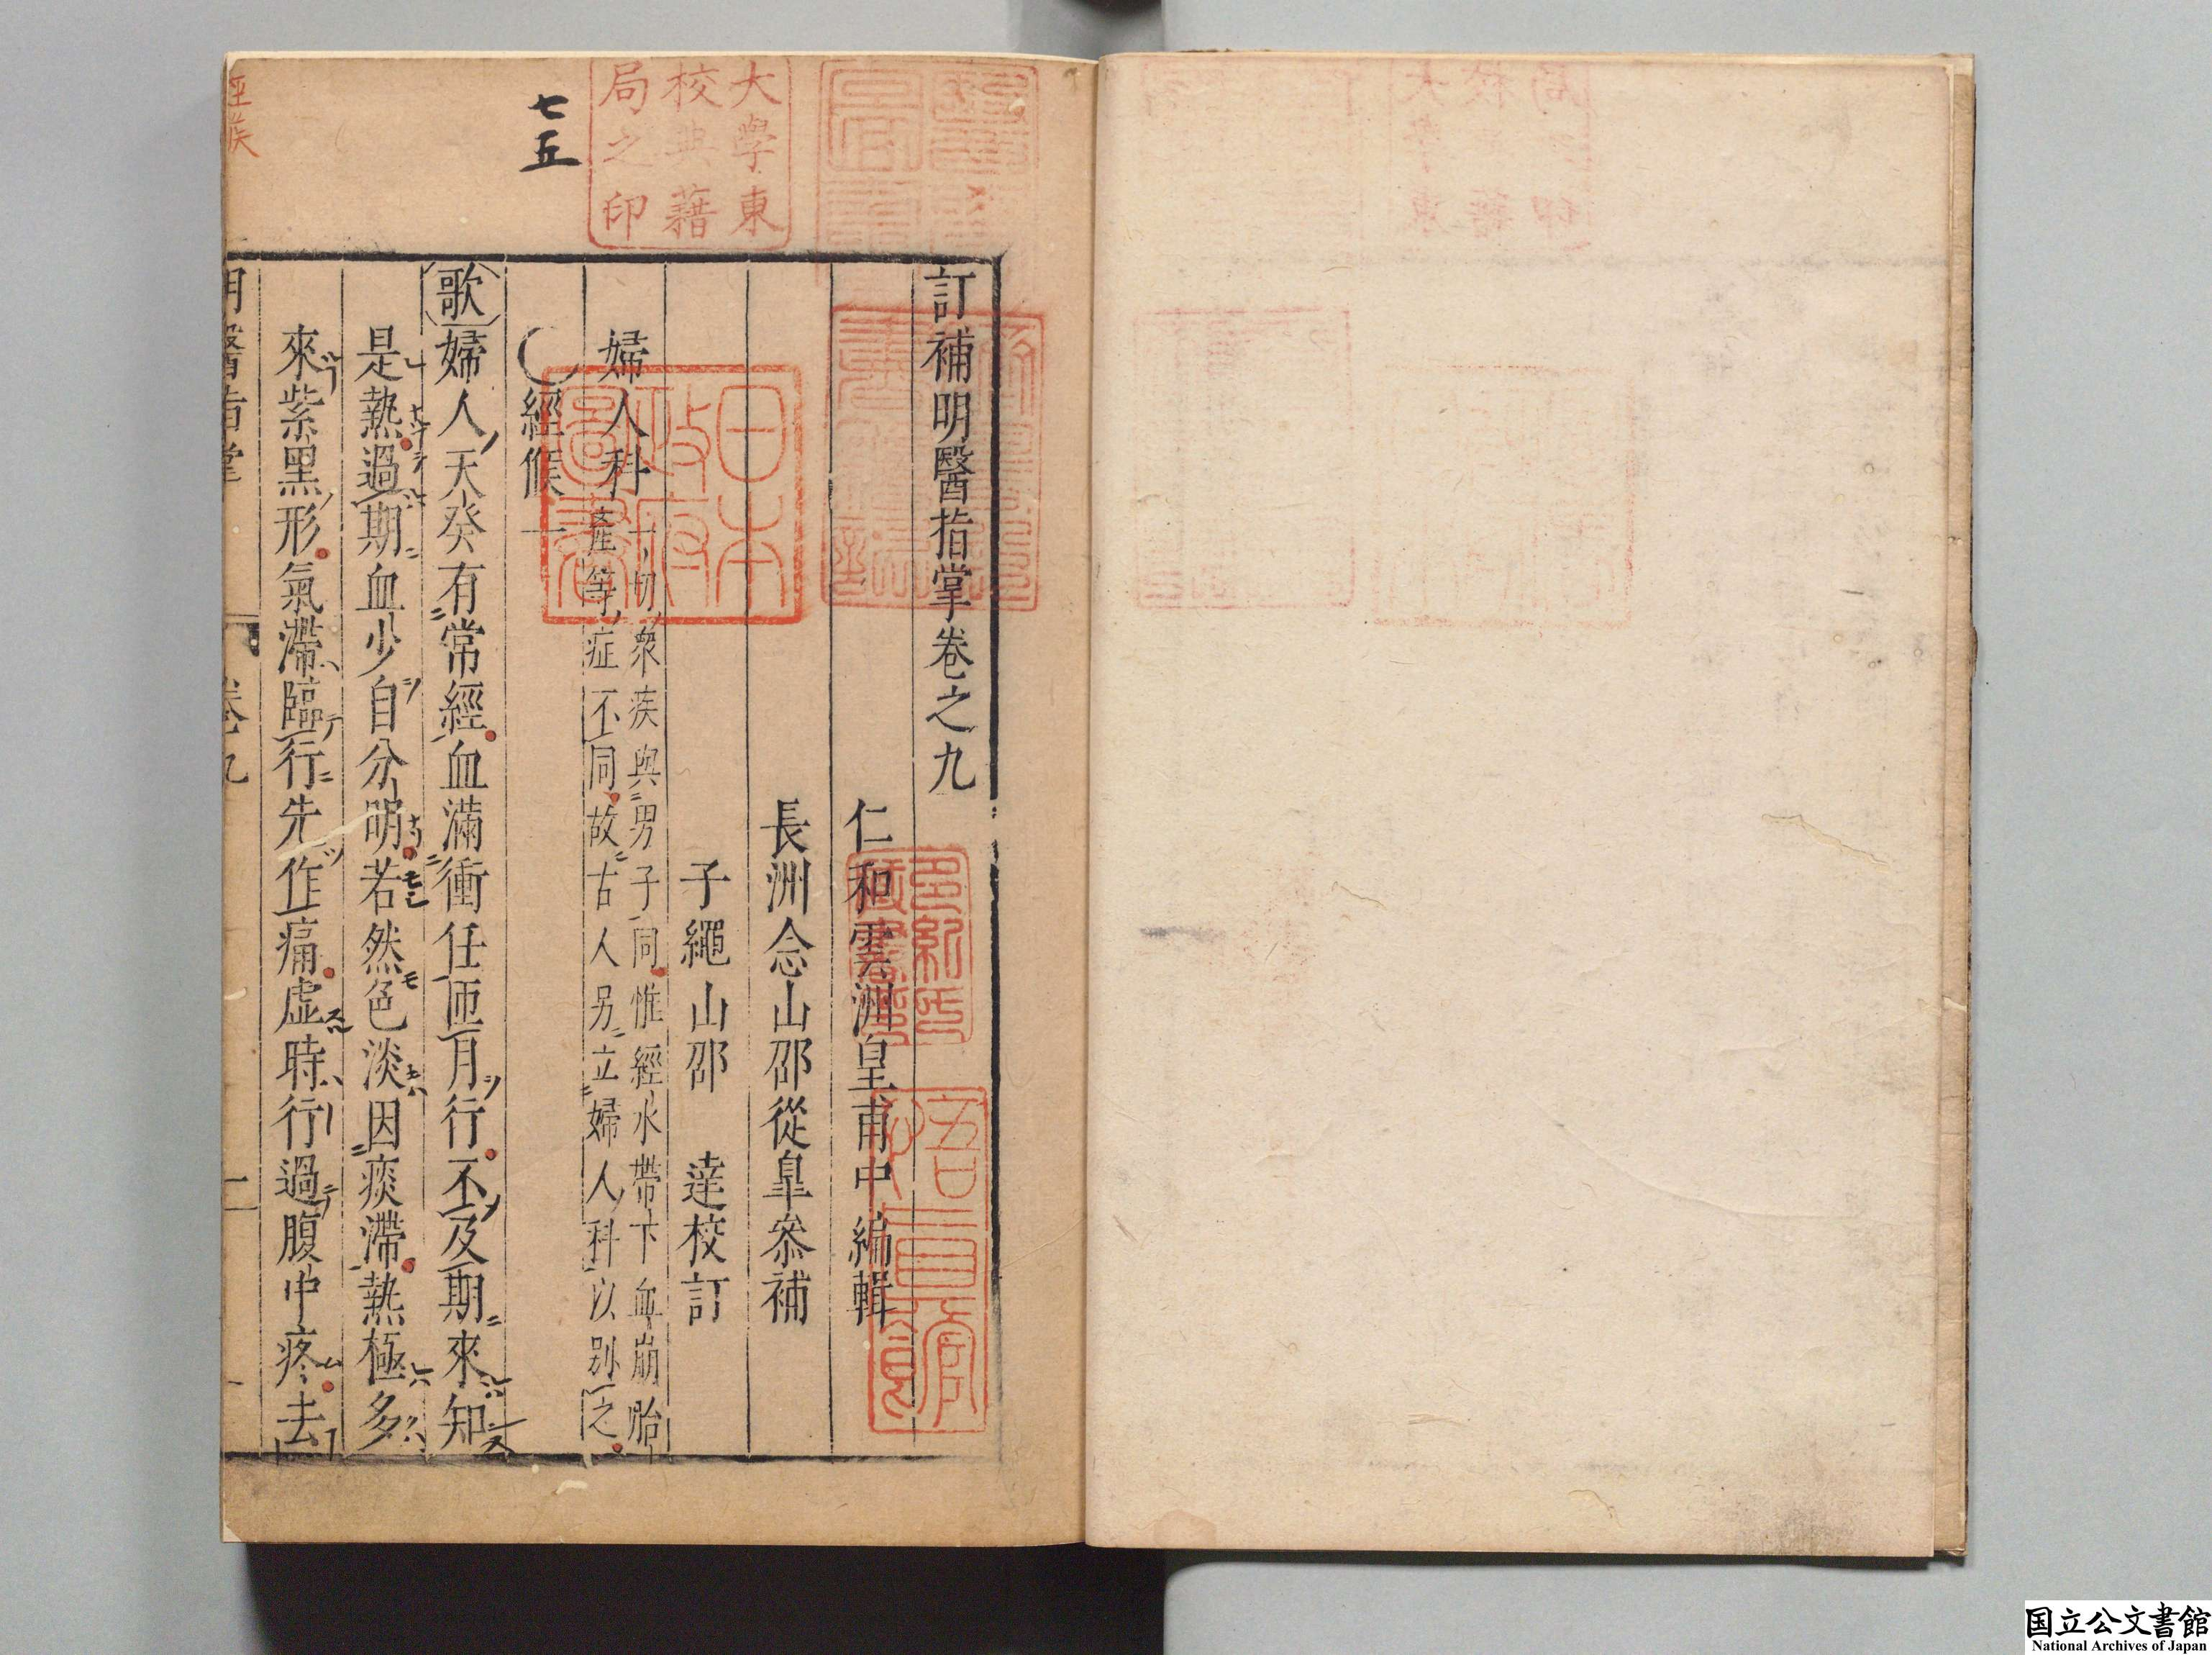 訂補明醫指掌卷之九
仁和雲洲皇甫中編輯
長洲念山邵從皐叅補
子繩山邵 達校訂
婦人科
一切衆疾與男子同惟經水帶下血崩胎
產等症不同故古人另立婦人科以別之
經候一
歌婦人天癸有常經血滿衝任匝月行不及期來知
是熱過期血少自分明若然色淡因痰滯熱極多
來紫黑形氣滯臨行先作痛虛時行過腹中疼去
明醫指掌
卷九
一
七五
大學東
校典藉
局之印
日本
政府
圖書
多紀氏
藏書印
国立公文書館
National Archives of Japan